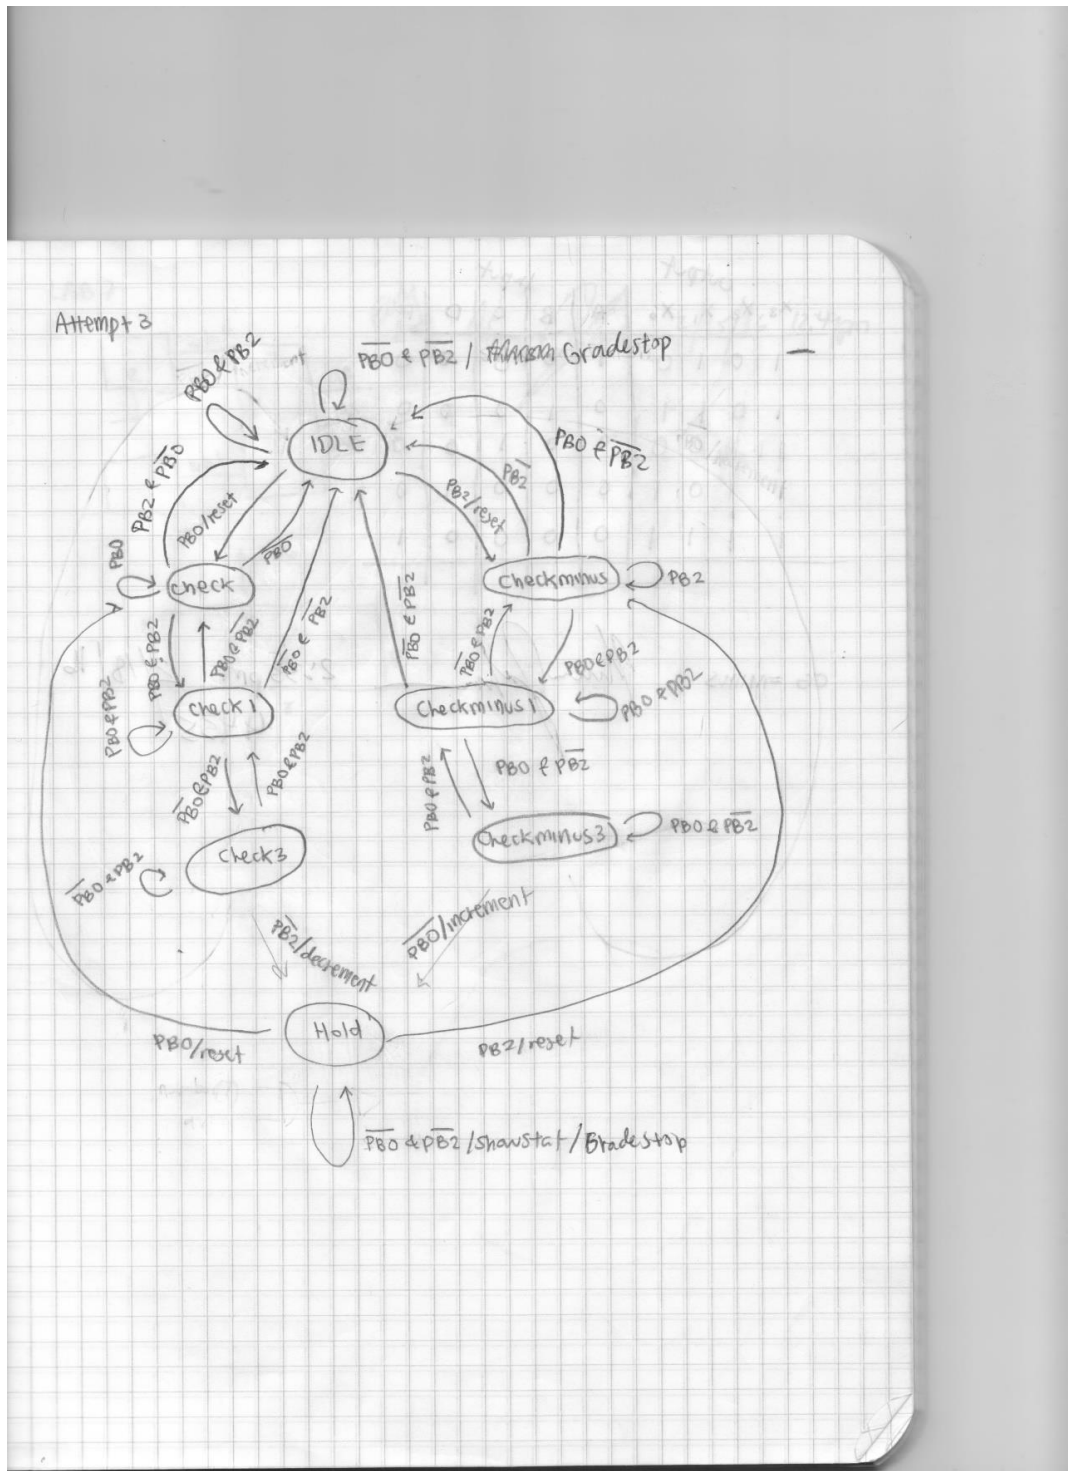 Attempt 3
P̅B̅0̅ & P̅B̅2̅ / Gradestop
PB0 & PB2
IDLE
PB0 & P̅B̅2̅
PB2 & P̅B̅0̅
P̅B̅2̅
PB0/reset
PB2/reset
P̅B̅0̅
PB0
check
checkminus
PB2
PB0 & PB2
PB0 & P̅B̅2̅
P̅B̅0̅ & P̅B̅2̅
P̅B̅0̅ & P̅B̅2̅
P̅B̅0̅ & PB2
PB0 & PB2
PB0 & PB2
check1
checkminus1
PB0 & PB2
P̅B̅0̅ & PB2
PB0 & PB2
PB0 & PB2
PB0 & P̅B̅2̅
check3
checkminus3
PB0 & P̅B̅2̅
P̅B̅0̅ & PB2
P̅B̅2̅/decrement
P̅B̅0̅/increment
Hold
PB0/reset
PB2/reset
P̅B̅0̅ & P̅B̅2̅/showstat/Gradestop